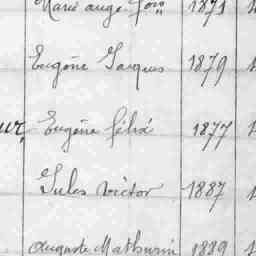 Marie ange fois 1871
Eugène Jacques 1879
eur, Eugène félix 1877
Jules victor 1887
auguste Mathurin 1889